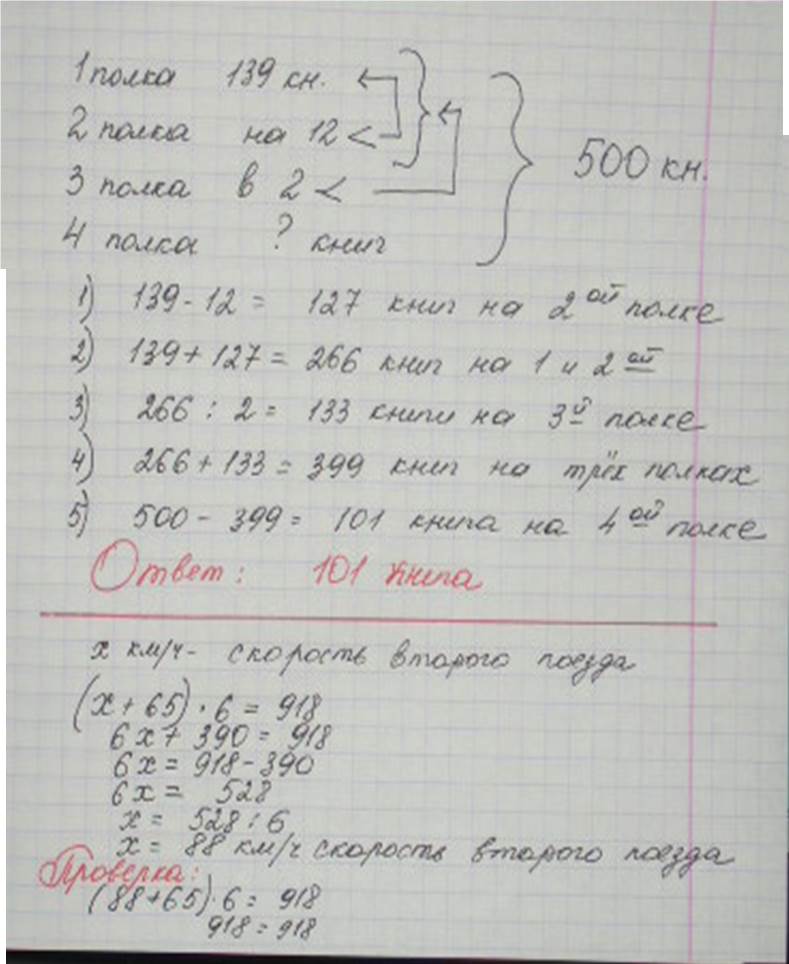 1 полка 139 кн.
2 полка на 12 <
3 полка в 2 <
500 кн.
4 полка ? книг
1) 139 - 12 = 127 книг на 2ой полке
2) 139 + 127 = 266 книг на 1 и 2ой
3) 266 : 2 = 133 книги на 3й полке
4) 266 + 133 = 399 книг на трёх полках
5) 500 - 399 = 101 книга на 4ой полке
Ответ: 101 книга
х км/ч - скорость второго поезда
(х + 65) · 6 = 918
6х + 390 = 918
6х = 918 - 390
6х = 528
х = 528 : 6
х = 88 км/ч скорость второго поезда
Проверка:
(88 + 65) · 6 = 918
918 = 918